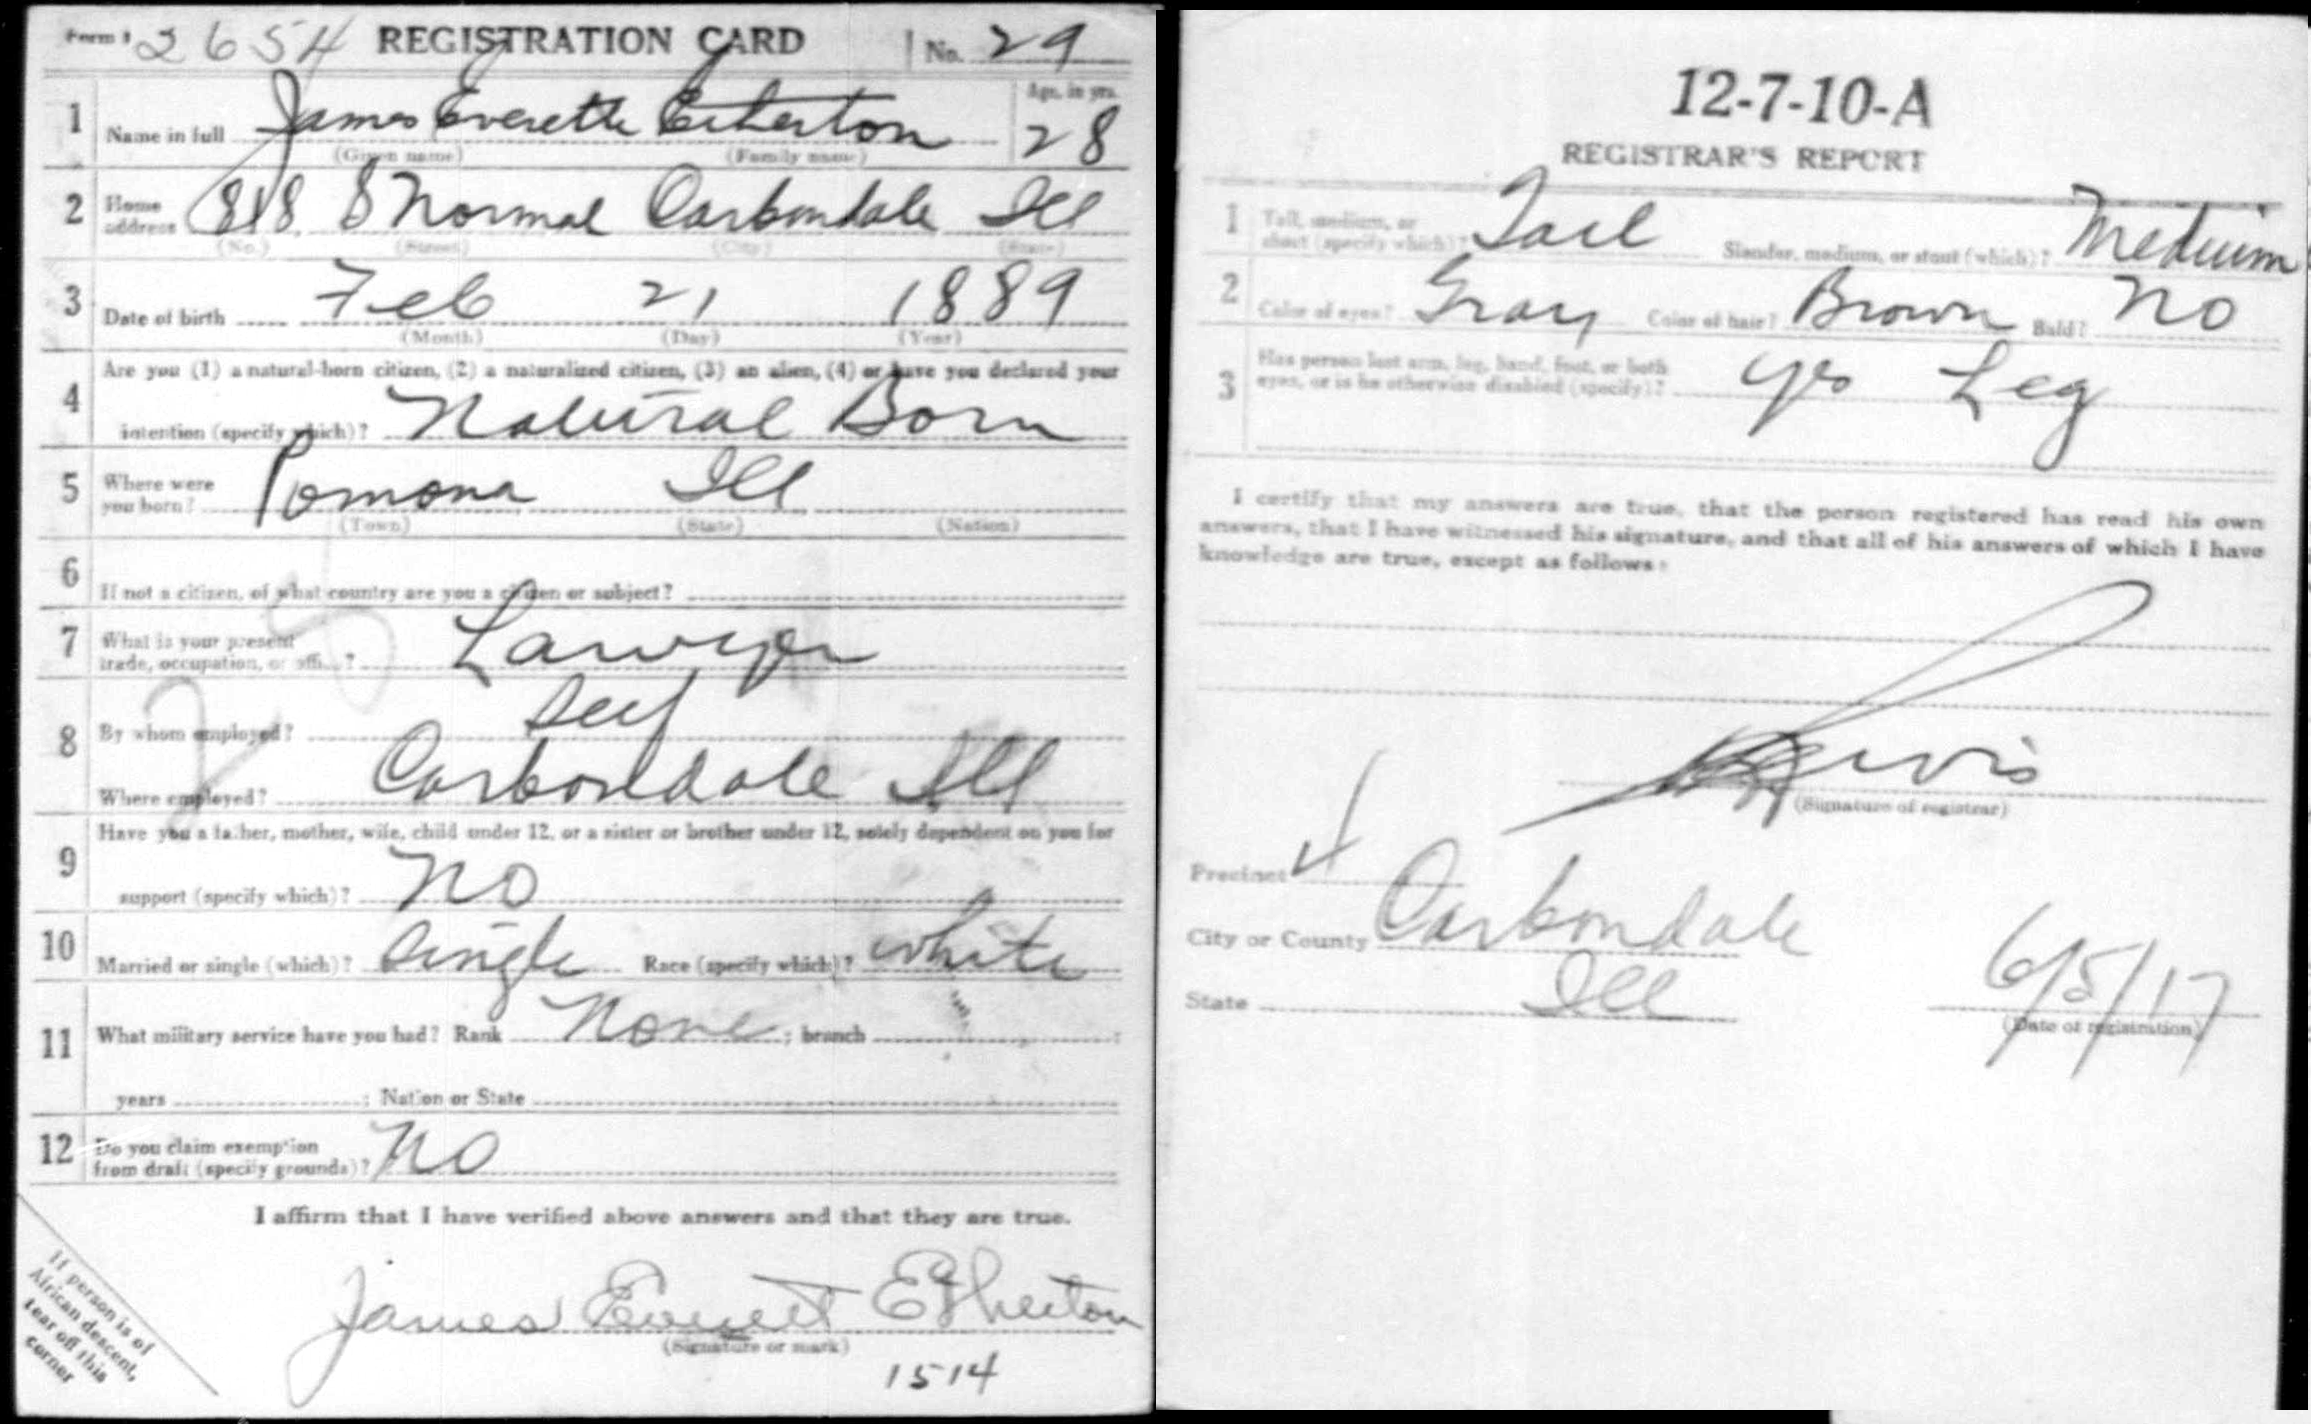 Form 1 2654 REGISTRATION CARD No. 29
1 Name in full James Everette Etherton Age, in yrs. 28
(Given name) (Family name)
2 Home address 818 S Normal Carbondale Ill
(No.) (Street) (City) (State)
3 Date of birth Feb 21 1889
(Month) (Day) (Year)
Are you (1) a natural-born citizen, (2) a naturalized citizen, (3) an alien, (4) or have you declared your
4 intention (specify which)? Natural Born
5 Where were you born? Pomona Ill
(Town) (State) (Nation)
6 If not a citizen, of what country are you a citizen or subject?
7 What is your present trade, occupation, or office? Lawyer
8 By whom employed? Self
Where employed? Carbondale Ill
Have you a father, mother, wife, child under 12, or a sister or brother under 12, solely dependent on you for
9 support (specify which)? No
10 Married or single (which)? Single Race (specify which)? White
11 What military service have you had? Rank None; branch
years ; Nation or State
12 Do you claim exemption from draft (specify grounds)? No
I affirm that I have verified above answers and that they are true.
James Everett Etherton
(Signature or mark)
1514
If person is of
African descent,
tear off this
corner
12-7-10-A
REGISTRAR'S REPORT
1 Tall, medium, or short (specify which)? Tall Slender, medium, or stout (which)? Medium
2 Color of eyes? Gray Color of hair? Brown Bald? No
3 Has person lost arm, leg, hand, foot, or both
eyes, or is he otherwise disabled (specify)? yes Leg
I certify that my answers are true, that the person registered has read his own
answers, that I have witnessed his signature, and that all of his answers of which I have
knowledge are true, except as follows:
(Signature of registrar)
Precinct 4
City or County Carbondale
State Ill 6/5/17
(Date of registration)